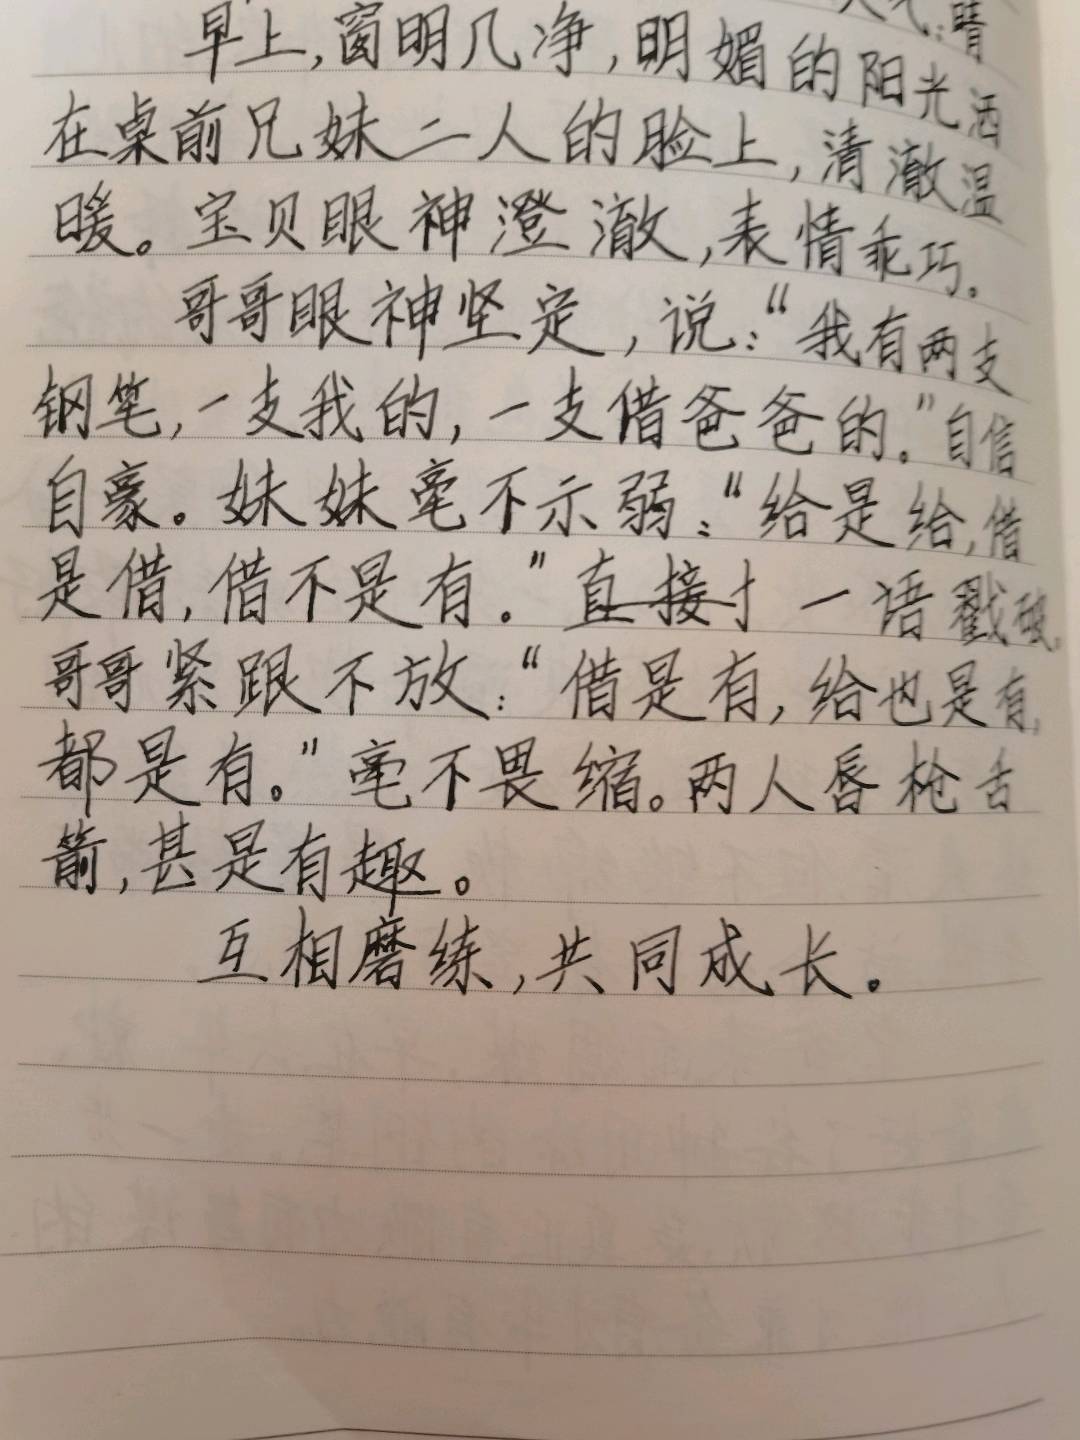 天气:晴
早上,窗明几净,明媚的阳光洒
在桌前兄妹二人的脸上,清澈温
暖。宝贝眼神澄澈,表情乖巧。
哥哥眼神坚定,说:“我有两支
钢笔,一支我的,一支借爸爸的。”自信
自豪。妹妹毫不示弱:“给是给,借
是借,借不是有。”直接 一语戳破。
哥哥紧跟不放:“借是有,给也是有,
都是有。”毫不畏缩。两人唇枪舌
箭,甚是有趣。
互相磨练,共同成长。